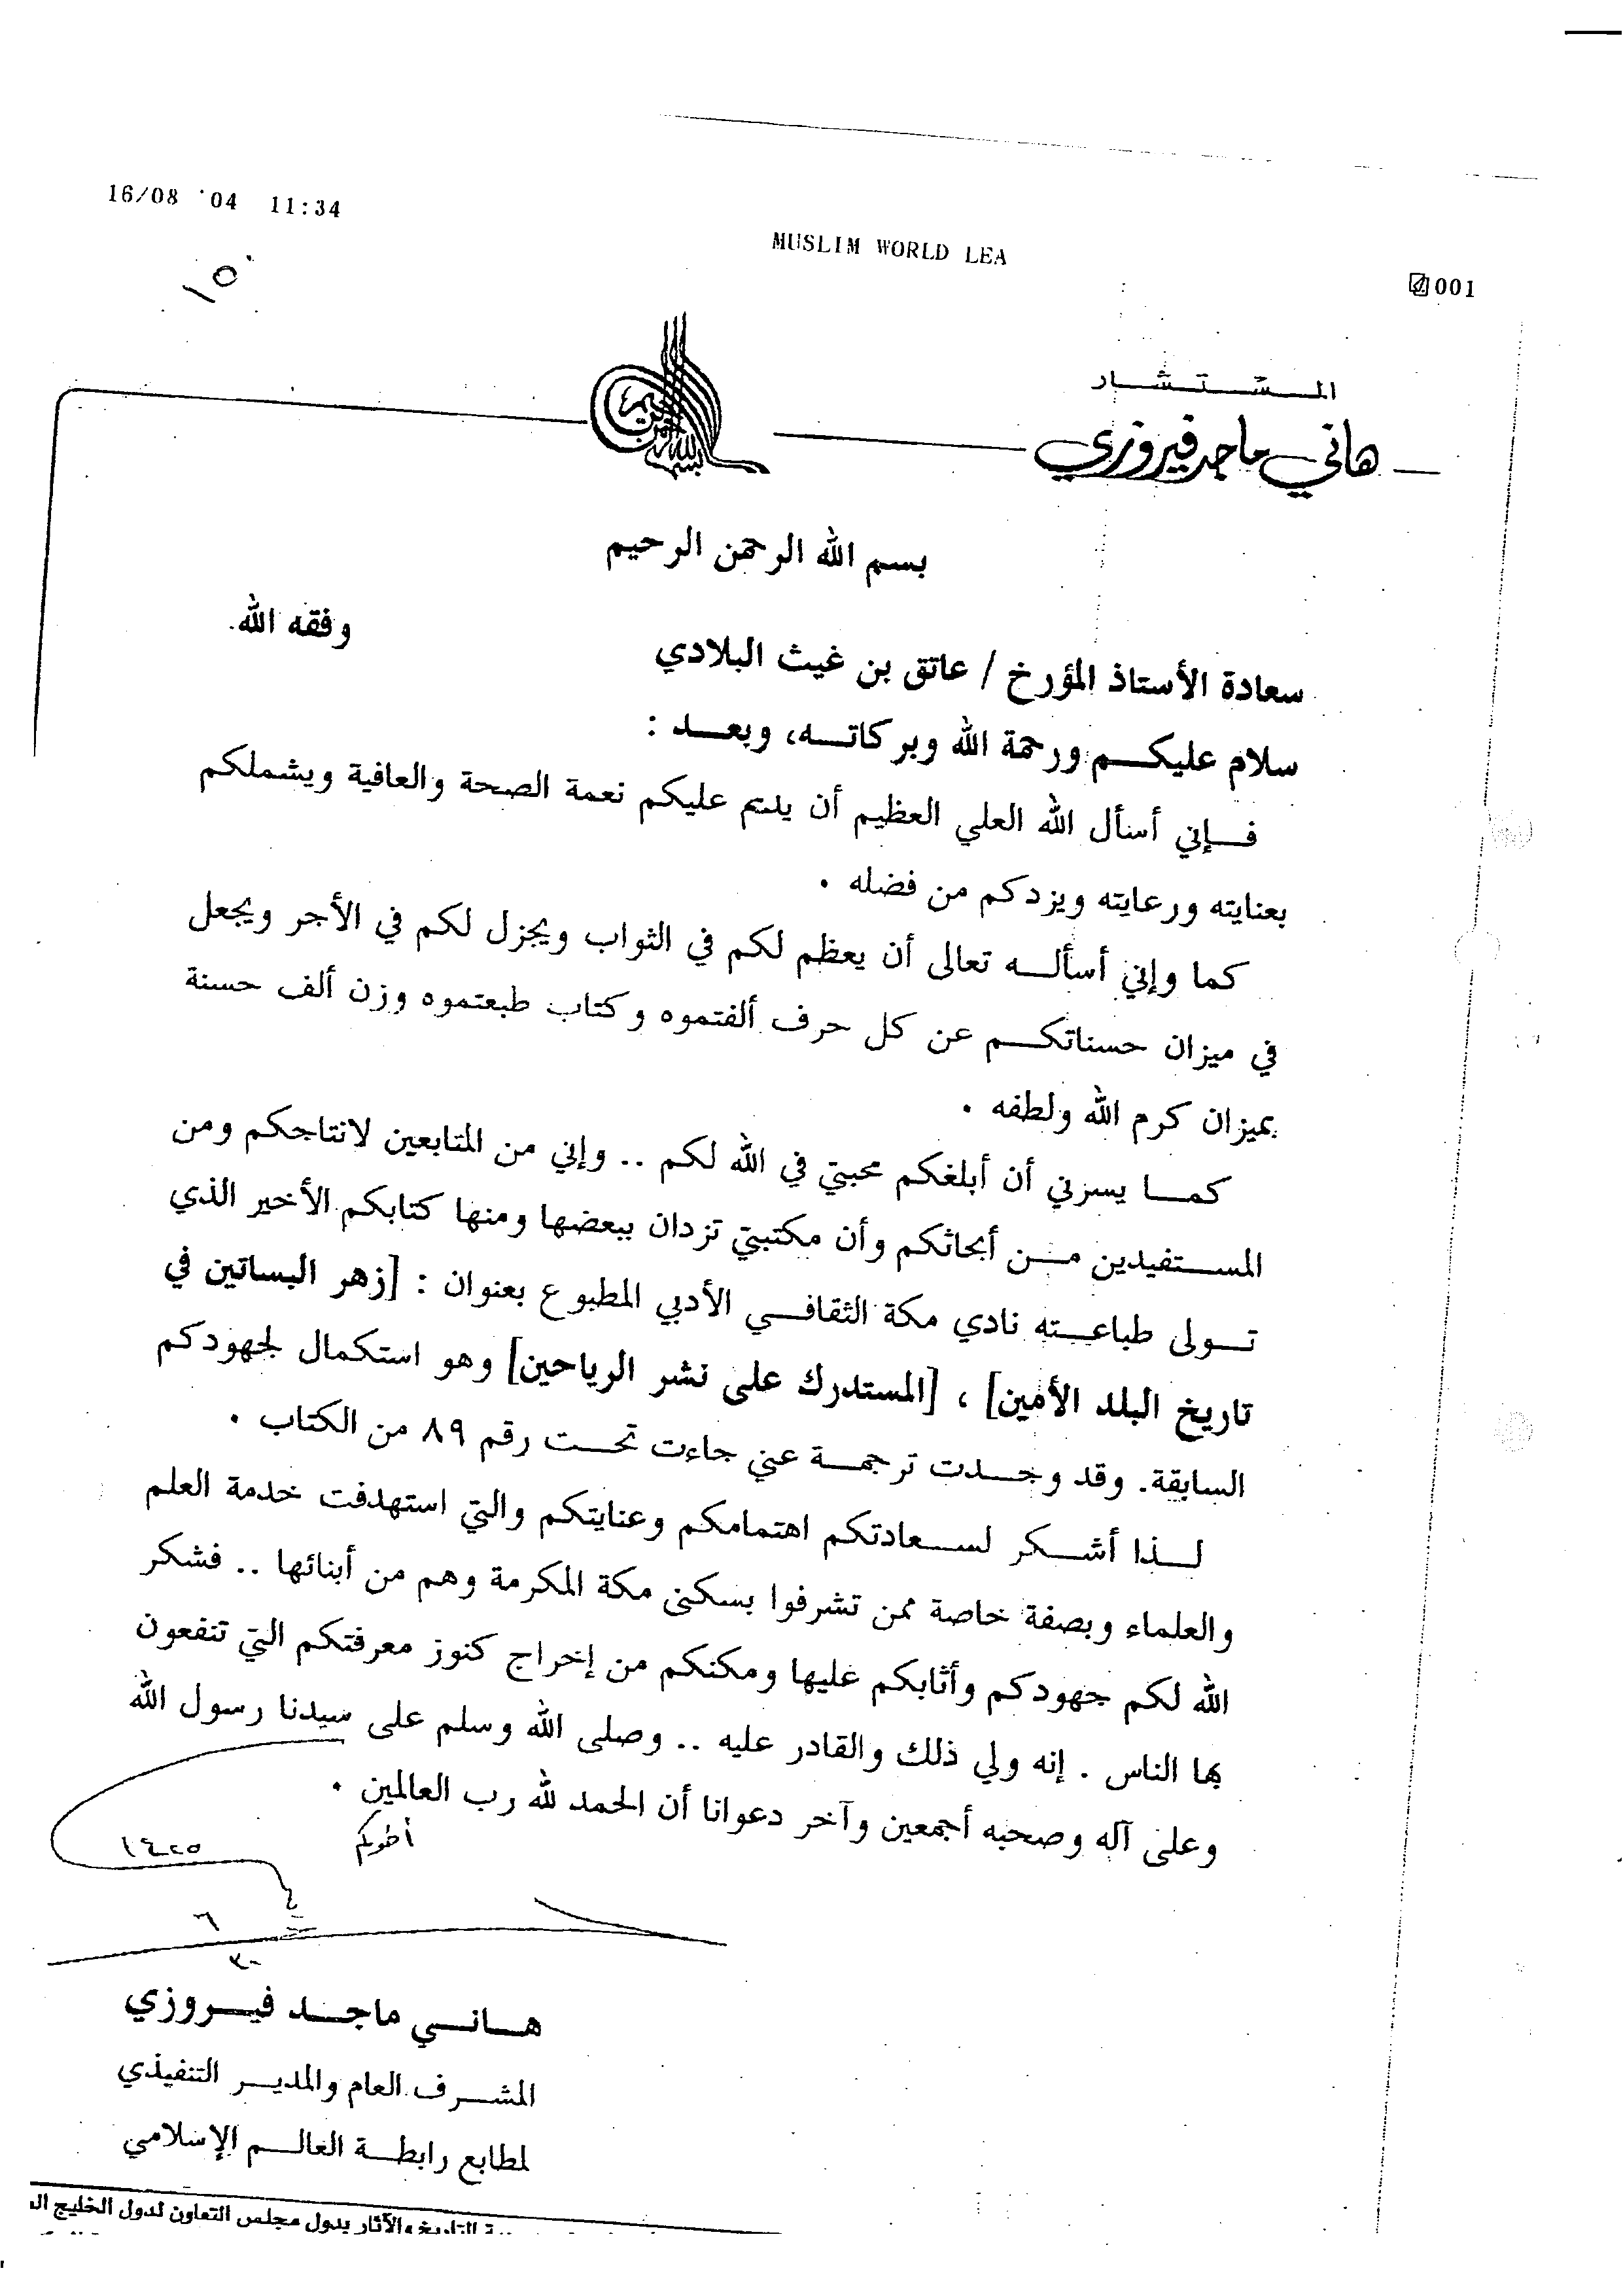 16/08 '04 11:34
MUSLIM WORLD LEA
001
١٥٠
المستشار
هاني ماجد فيروزي
بسم الله الرحمن الرحيم
سعادة الأستاذ المؤرخ / عاتق بن غيث البلادي وفقه الله.
سلام عليكم ورحمة الله وبركاته، وبعد :
فإني أسأل الله العلي العظيم أن يديم عليكم نعمة الصحة والعافية ويشملكم
بعنايته ورعايته ويزدكم من فضله .
كما وإني أسأله تعالى أن يعظم لكم في الثواب ويجزل لكم في الأجر ويجعل
في ميزان حسناتكم عن كل حرف ألفتموه وكتاب طبعتموه وزن ألف حسنة
بميزان كرم الله ولطفه .
كما يسرني أن أبلغكم محبتي في الله لكم .. وإني من المتابعين لانتاجكم ومن
المستفيدين من أبحاثكم وأن مكتبتي تزدان ببعضها ومنها كتابكم الأخير الذي
تولى طباعته نادي مكة الثقافي الأدبي المطبوع بعنوان : [زهر البساتين في
تاريخ البلد الأمين] ، [المستدرك على نشر الرياحين] وهو استكمال لجهودكم
السابقة. وقد وجدت ترجمة عني جاءت تحت رقم ٨٩ من الكتاب .
لذا أشكر لسعادتكم اهتمامكم وعنايتكم والتي استهدفت خدمة العلم
والعلماء وبصفة خاصة ممن تشرفوا بسكنى مكة المكرمة وهم من أبنائها .. فشكر
الله لكم جهودكم وأثابكم عليها ومكنكم من إخراج كنوز معرفتكم التي تنفعون
بها الناس . إنه ولي ذلك والقادر عليه .. وصلى الله وسلم على سيدنا رسول الله
وعلى آله وصحبه أجمعين وآخر دعوانا أن الحمد لله رب العالمين .
أخوكم
١٤٢٥
٦
٣٠
هاني ماجد فيروزي
المشرف العام والمدير التنفيذي
لمطابع رابطة العالم الإسلامي
التاريخ والآثار بدول مجلس التعاون لدول الخليج